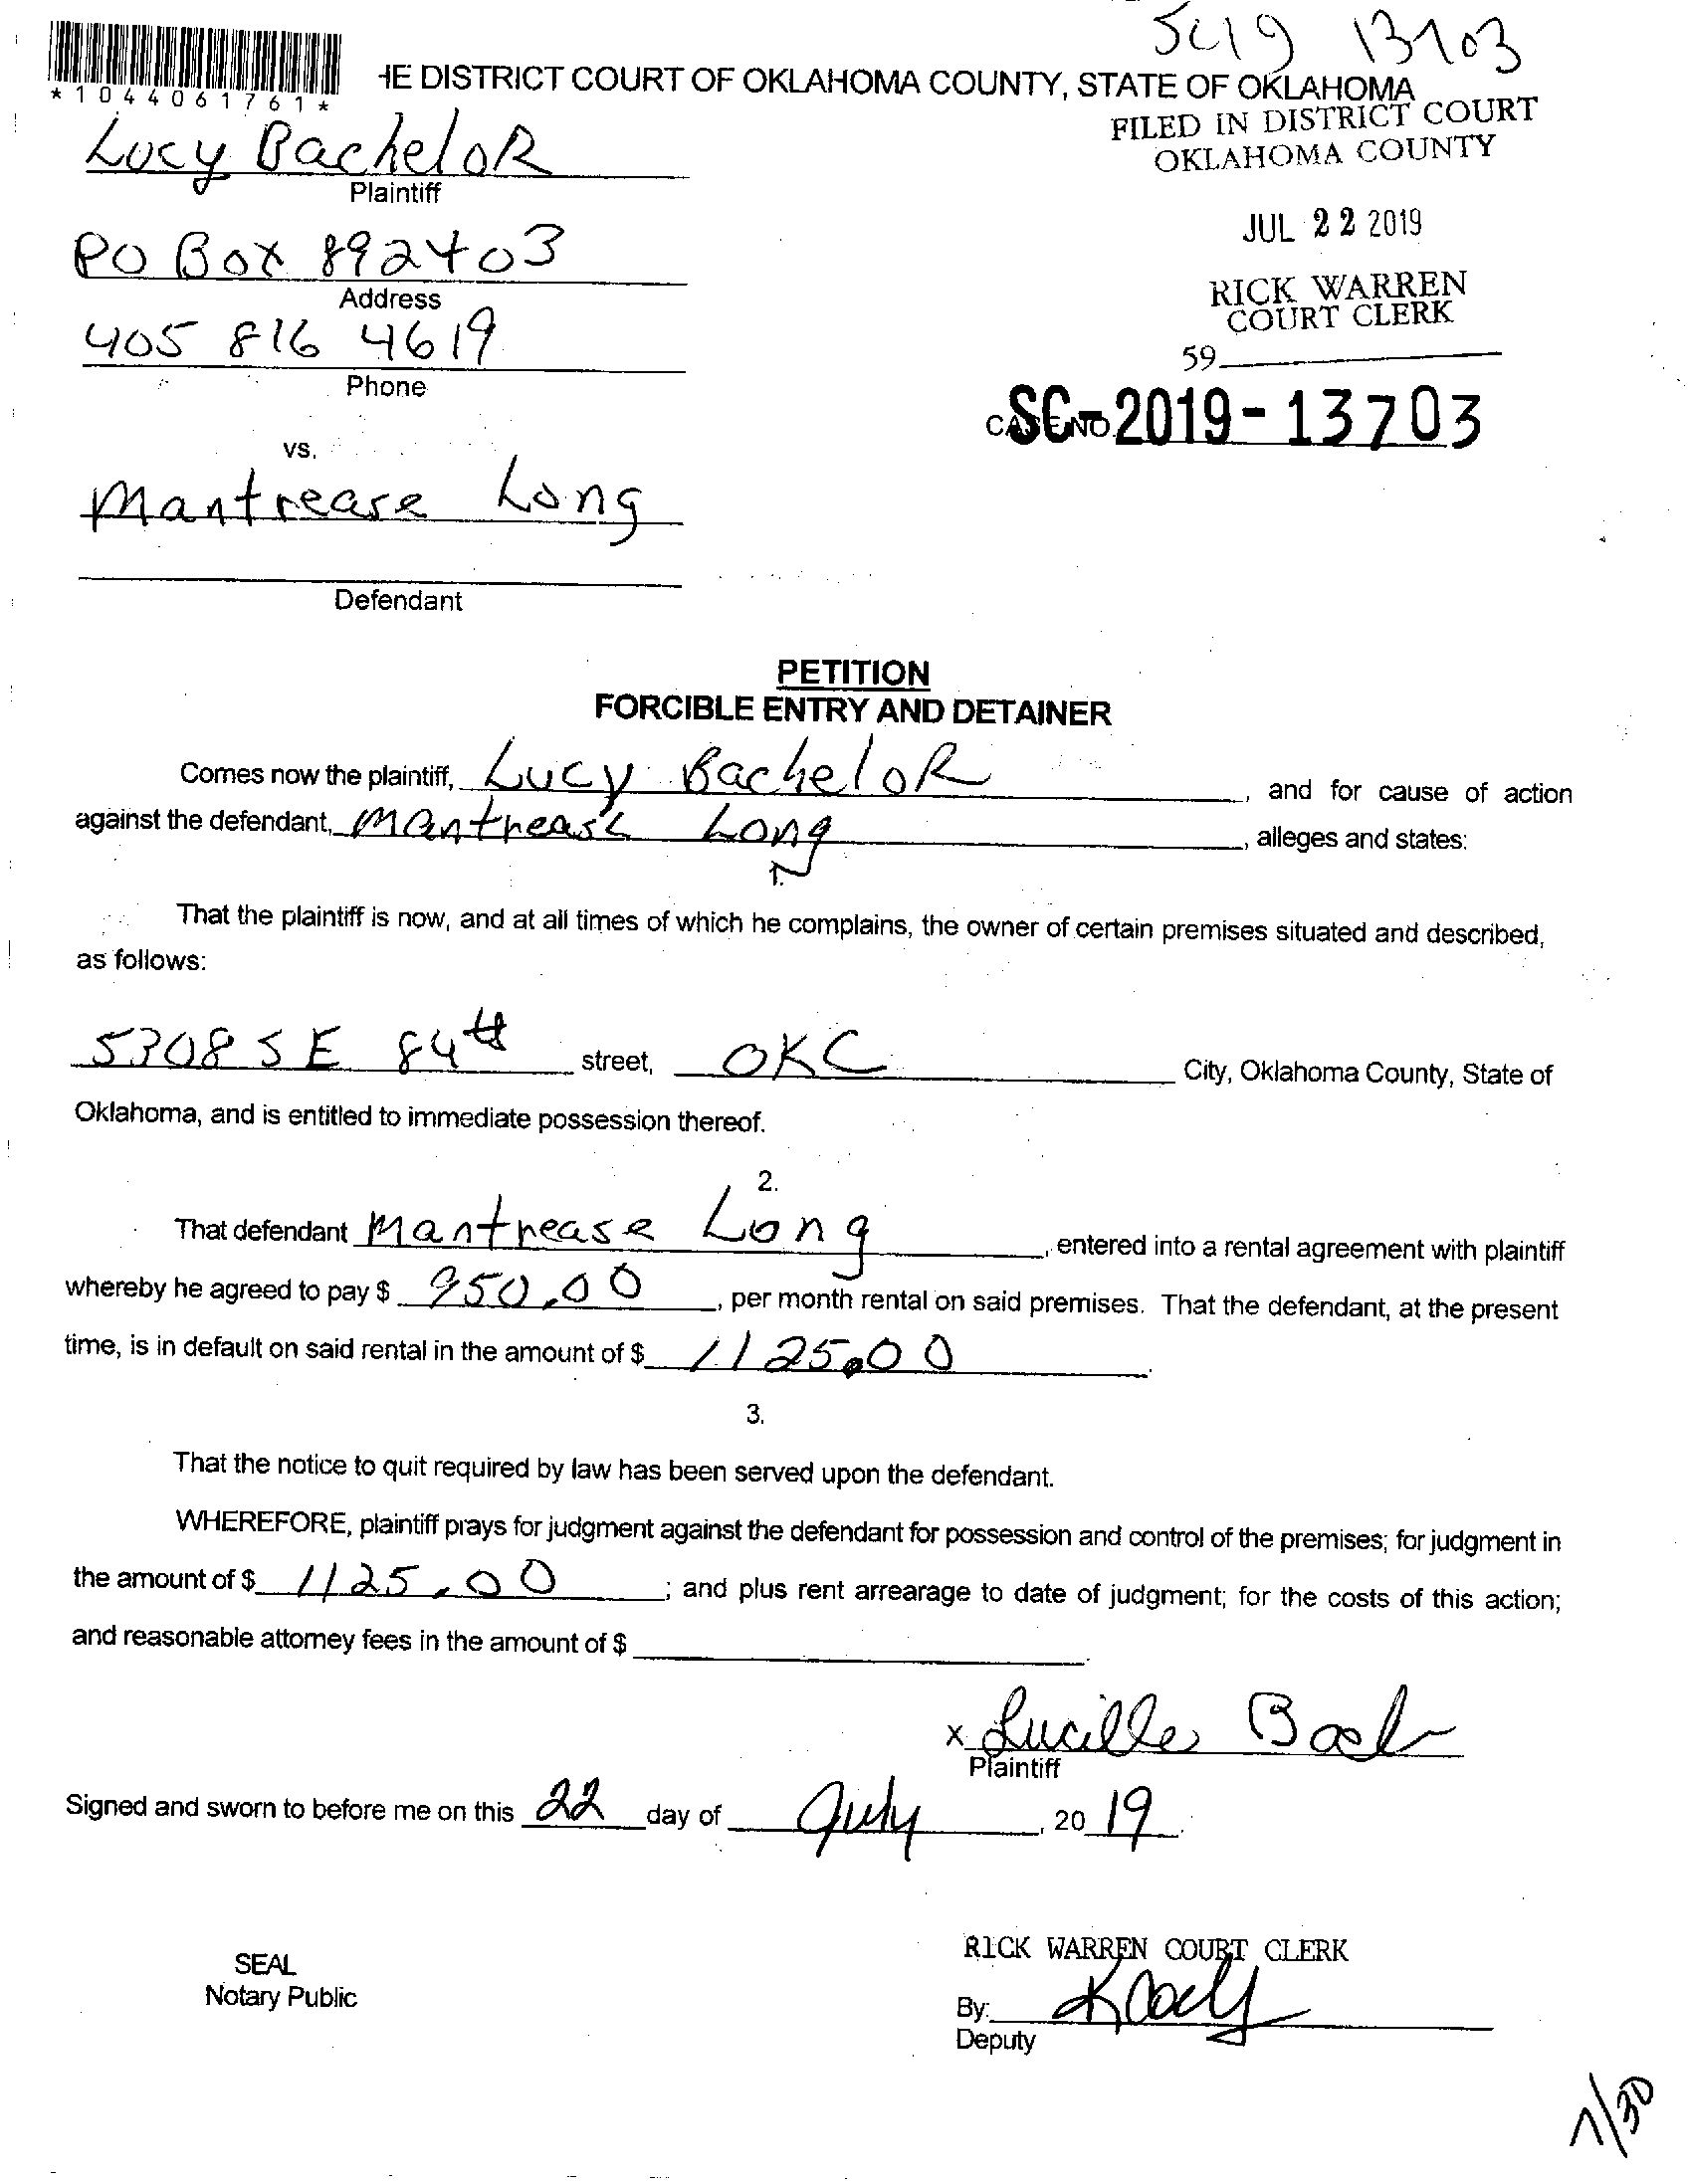 SC19 13703
*1044061761*
HE DISTRICT COURT OF OKLAHOMA COUNTY, STATE OF OKLAHOMA
FILED IN DISTRICT COURT
OKLAHOMA COUNTY
Lucy BacheloR
Plaintiff
JUL 22 2019
PO Box 892403
Address
RICK WARREN
COURT CLERK
405 816 4619
Phone
59
CASE NO. SC-2019-13703
vs.
Mantrease Long
Defendant
PETITION
FORCIBLE ENTRY AND DETAINER
Comes now the plaintiff, Lucy BacheloR, and for cause of action
against the defendant, Mantrease Long, alleges and states:
1.
That the plaintiff is now, and at all times of which he complains, the owner of certain premises situated and described,
as follows:
5308 SE 84th street, OKC City, Oklahoma County, State of
Oklahoma, and is entitled to immediate possession thereof.
2.
That defendant Mantrease Long, entered into a rental agreement with plaintiff
whereby he agreed to pay $ 950.00, per month rental on said premises. That the defendant, at the present
time, is in default on said rental in the amount of $ 1125.00.
3.
That the notice to quit required by law has been served upon the defendant.
WHEREFORE, plaintiff prays for judgment against the defendant for possession and control of the premises; for judgment in
the amount of $ 1125.00; and plus rent arrearage to date of judgment; for the costs of this action;
and reasonable attorney fees in the amount of $
x Lucille
Plaintiff
Signed and sworn to before me on this 22 day of July, 2019.
RICK WARREN COURT CLERK
SEAL
Notary Public
By:
Deputy
7/30